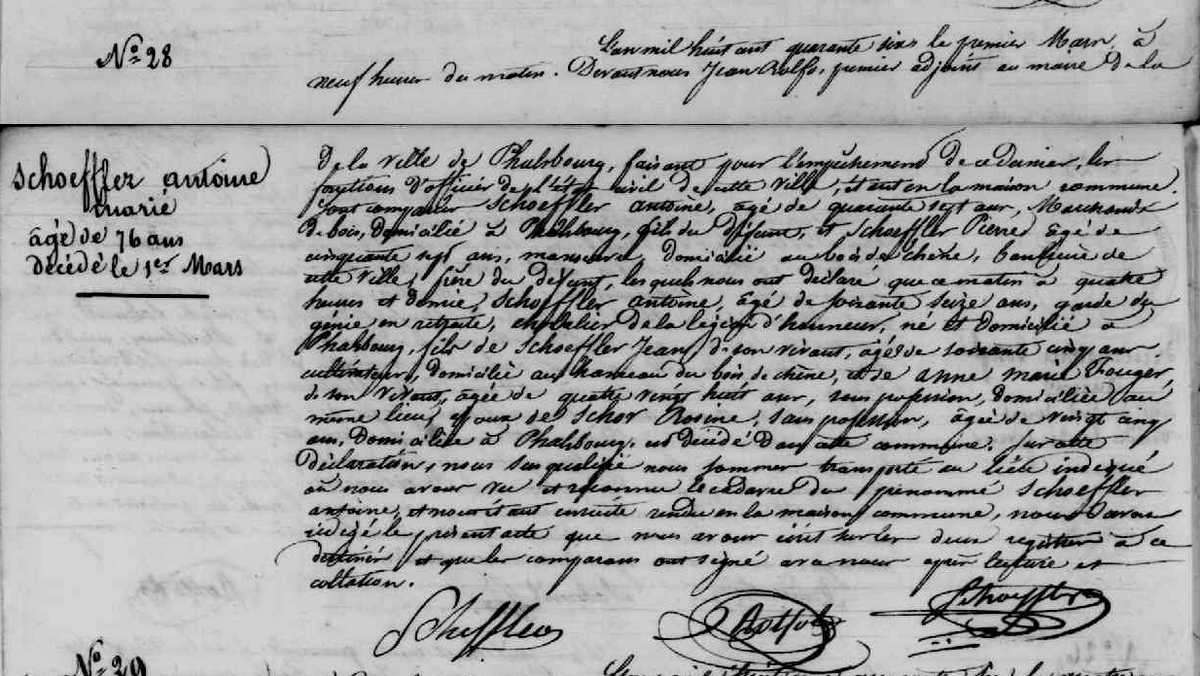 N° 28
L'an mil huit cent quarante six le premier Mars, à
neuf heures du matin. Devant nous Jean Rolfo, premier adjoint au maire de la
Schoeffler antoine
marié
âgé de 76 ans
décédé le 1er Mars
de la ville de Phalsbourg, faisant pour l'empêchement de ce dernier, les
fonctions d'officier de l'état civil de cette ville, étant en la maison commune.
sont comparus Schoeffler antoine, âgé de quarante sept ans, Marchand
de bois, domicilié à Phalsbourg, fils du défunt, et Schoeffler Pierre âgé de
cinquante sept ans, manoeuvre, domicilié au bois de chêne, banlieue de
cette ville, frère du défunt, lesquels nous ont déclaré que ce matin à quatre
heures et demie, Schoeffler antoine, âgé de soixante seize ans, garde du
génie en retraite, chevalier de la légion d'honneur, né et domicilié à
Phalsbourg, fils de Schoeffler Jean, de son vivant, âgé de soixante cinq ans
cultivateur, domicilié au hameau du bois de chêne, et de anne marie
de son vivant, agée de quatre vingt huit ans, sans profession, domiciliée au
même lieu, époux de Schor Rosine, sans profession, âgée de vingt cinq
ans, domiciliée à Phalsbourg, est décédé dans cette commune. Sur cette
déclaration, nous susqualifié nous sommes transporté au lieu indiqué
où nous avons vu et reconnu le cadavre du prénommé Schoeffler
antoine, et nous étant ensuite rendu en la maison commune, nous avons
rédigé le présent acte que nous avons écrit sur les deux registres à ce
destinés et que les comparans ont signé avec nous après lecture et
collation.
Schoeffler Rolfo Schoeffler
N° 29